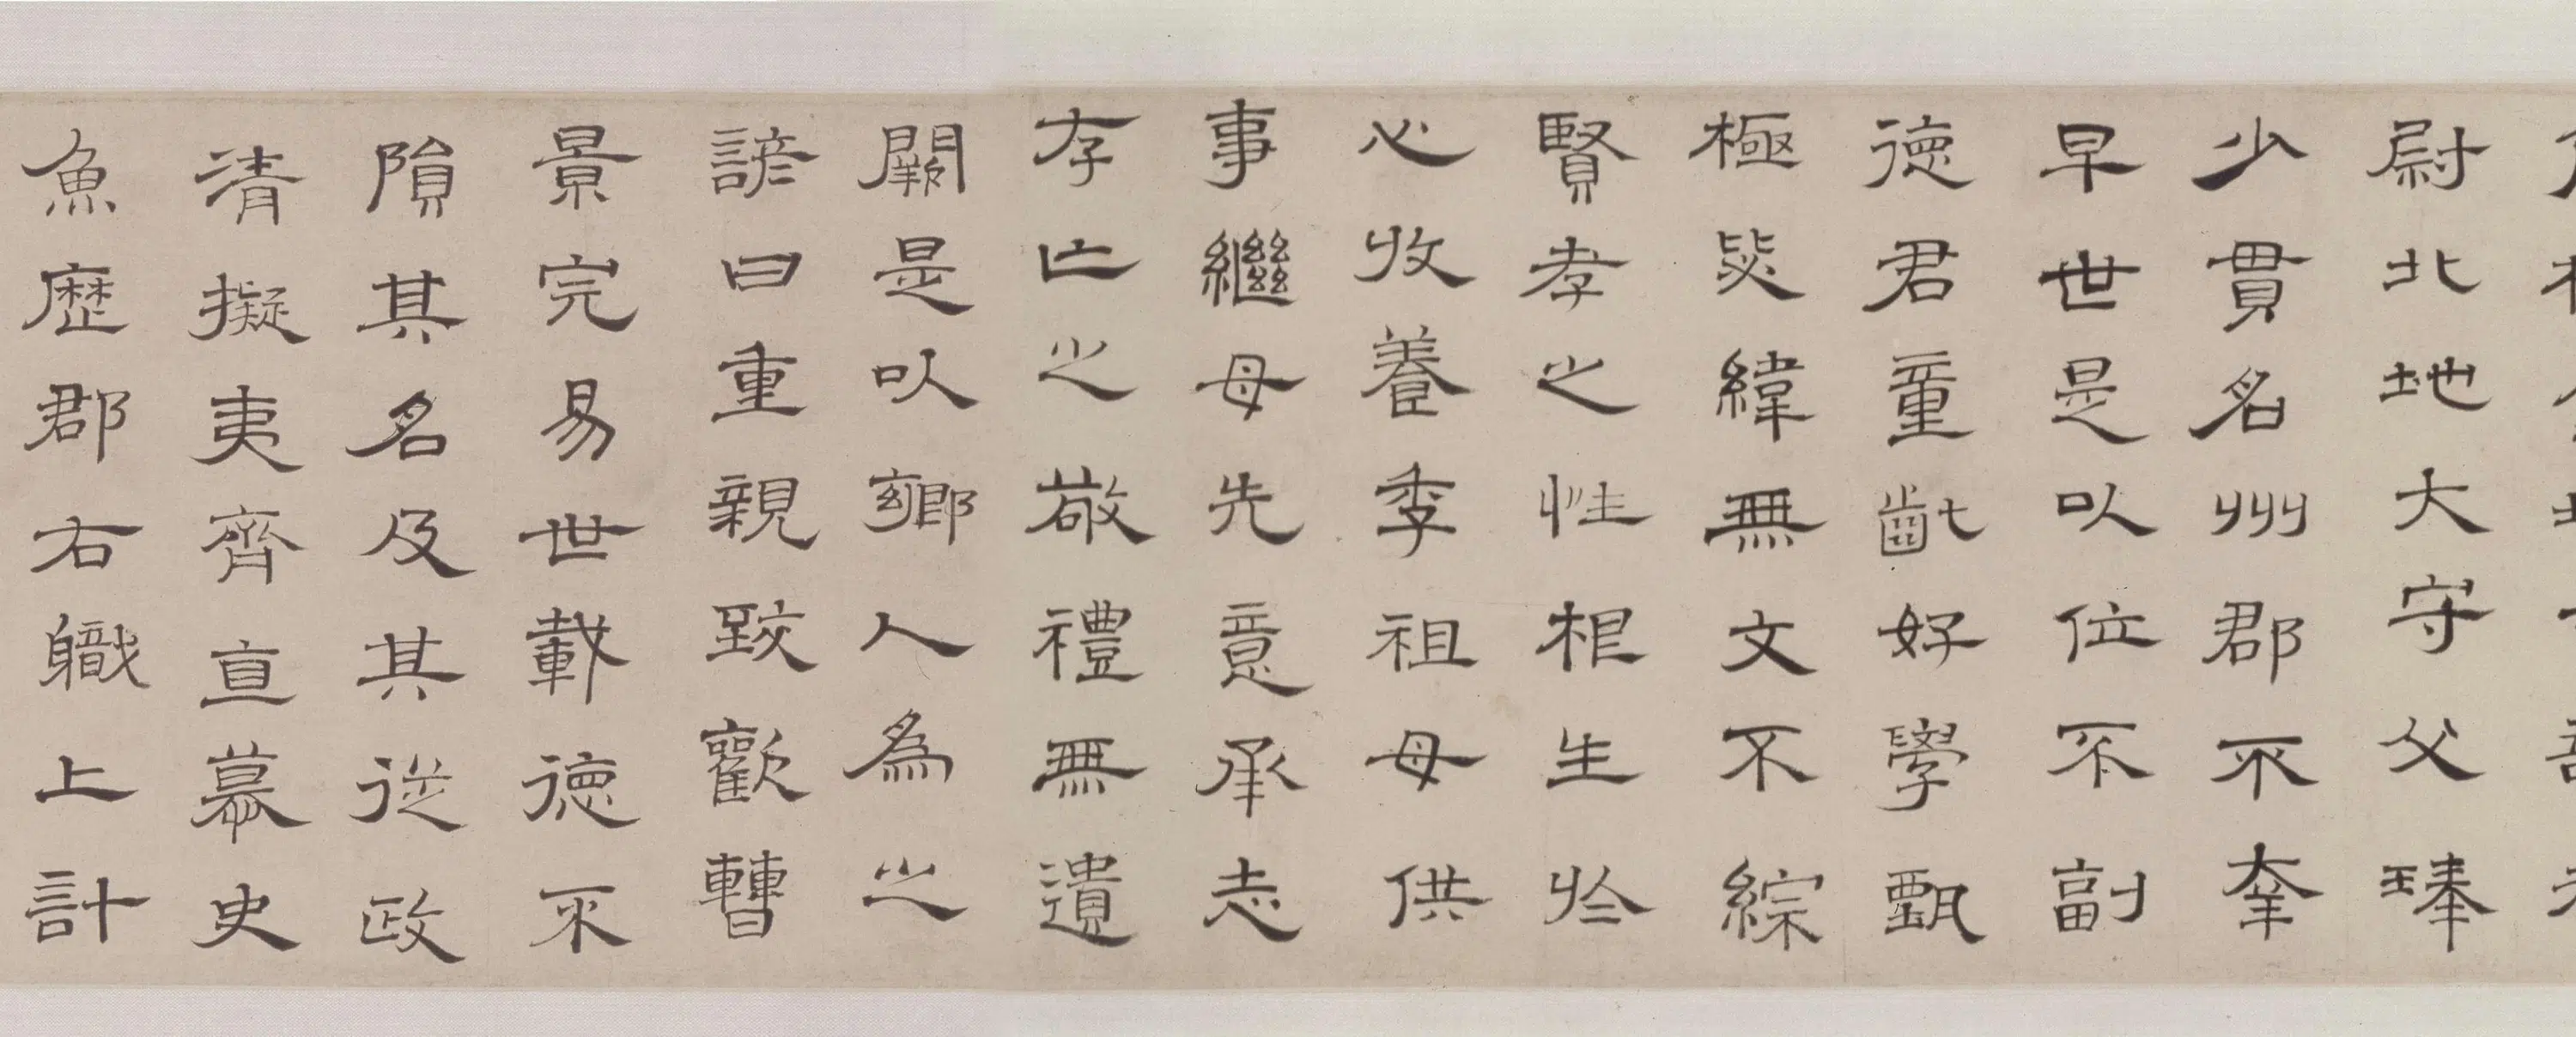 尉北地大守父琫
少貫名州郡不幸
早世是以位不副
德君童齔好學甄
極毖緯無文不綜
賢孝之性根生於
心收養季祖母供
事繼母先意承志
存亡之敬禮無遺
闕是以鄉人為之
諺曰重親致歡曹
景完易世載德不
隕其名及其從政
清擬夷齊直慕史
魚歷郡右職上計